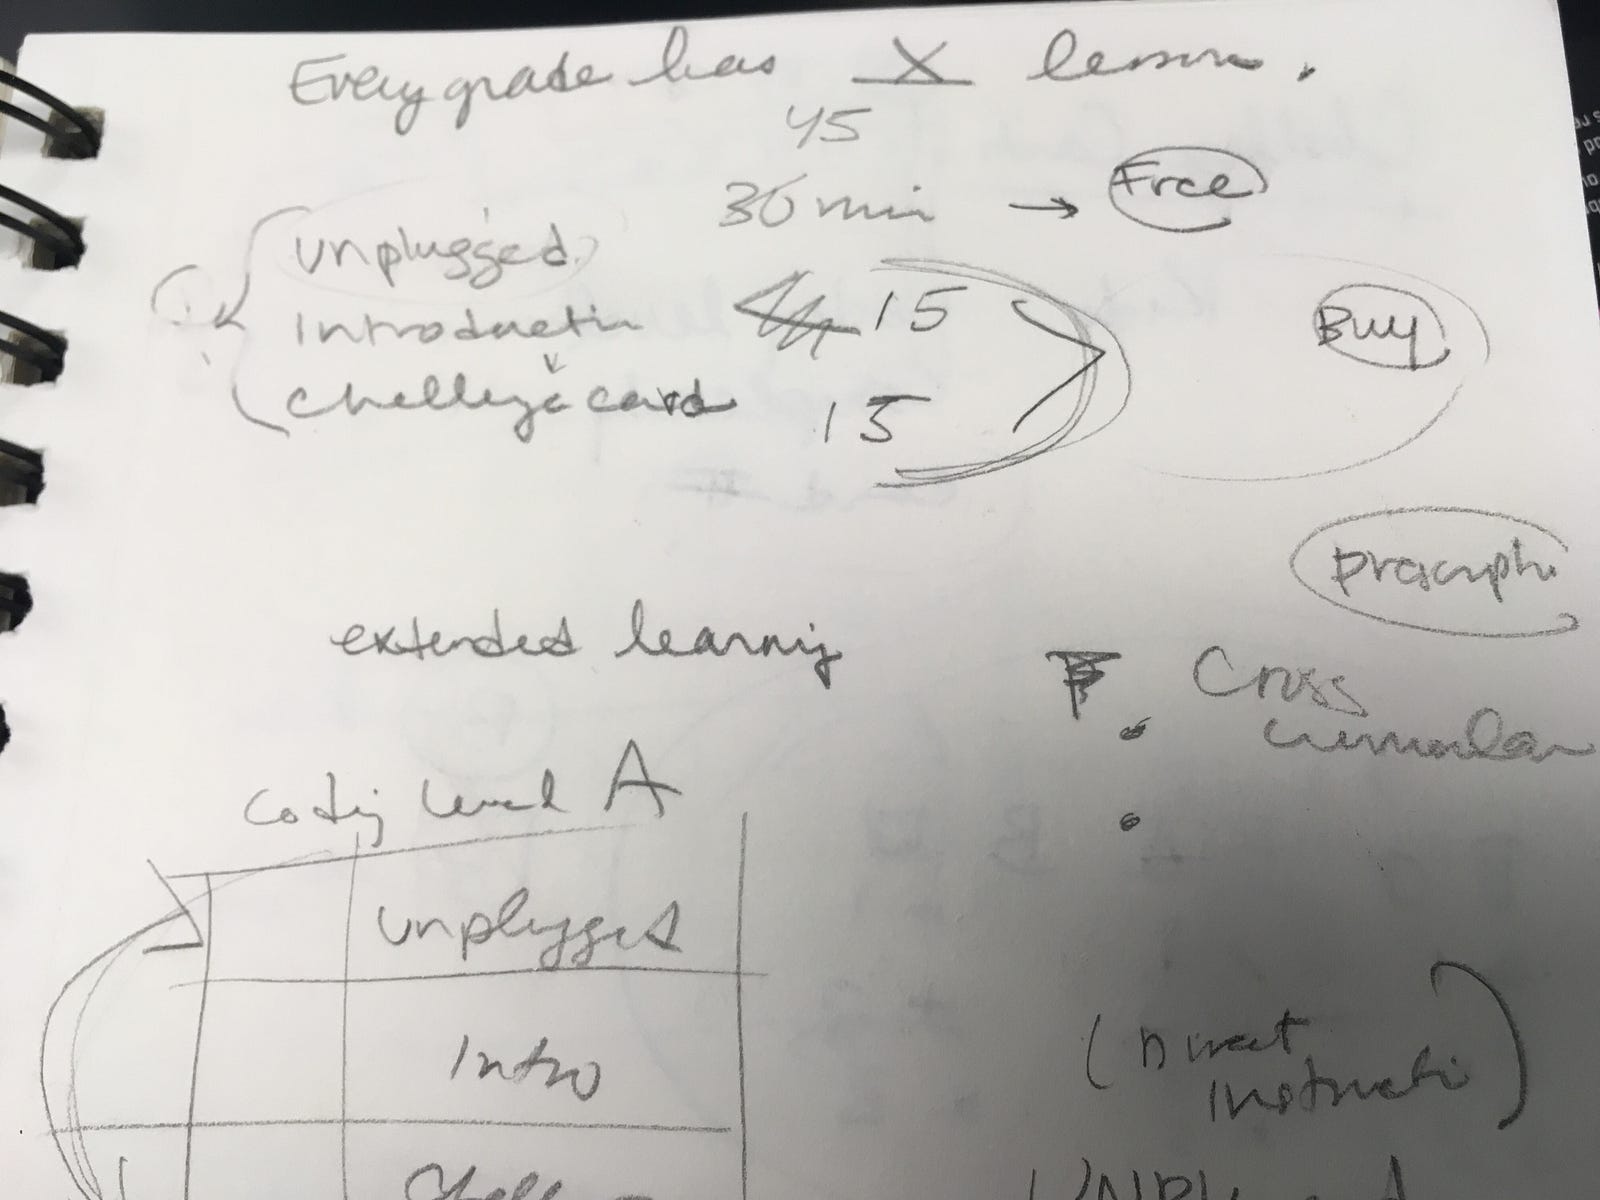 Every grade has X lessons.
45
30 min → Free
unplugged
introduction 15
Buy
challenge card 15
extended learning
Cross
curricular
Coding level A
unplugged
Intro
(Direct
Instructi)